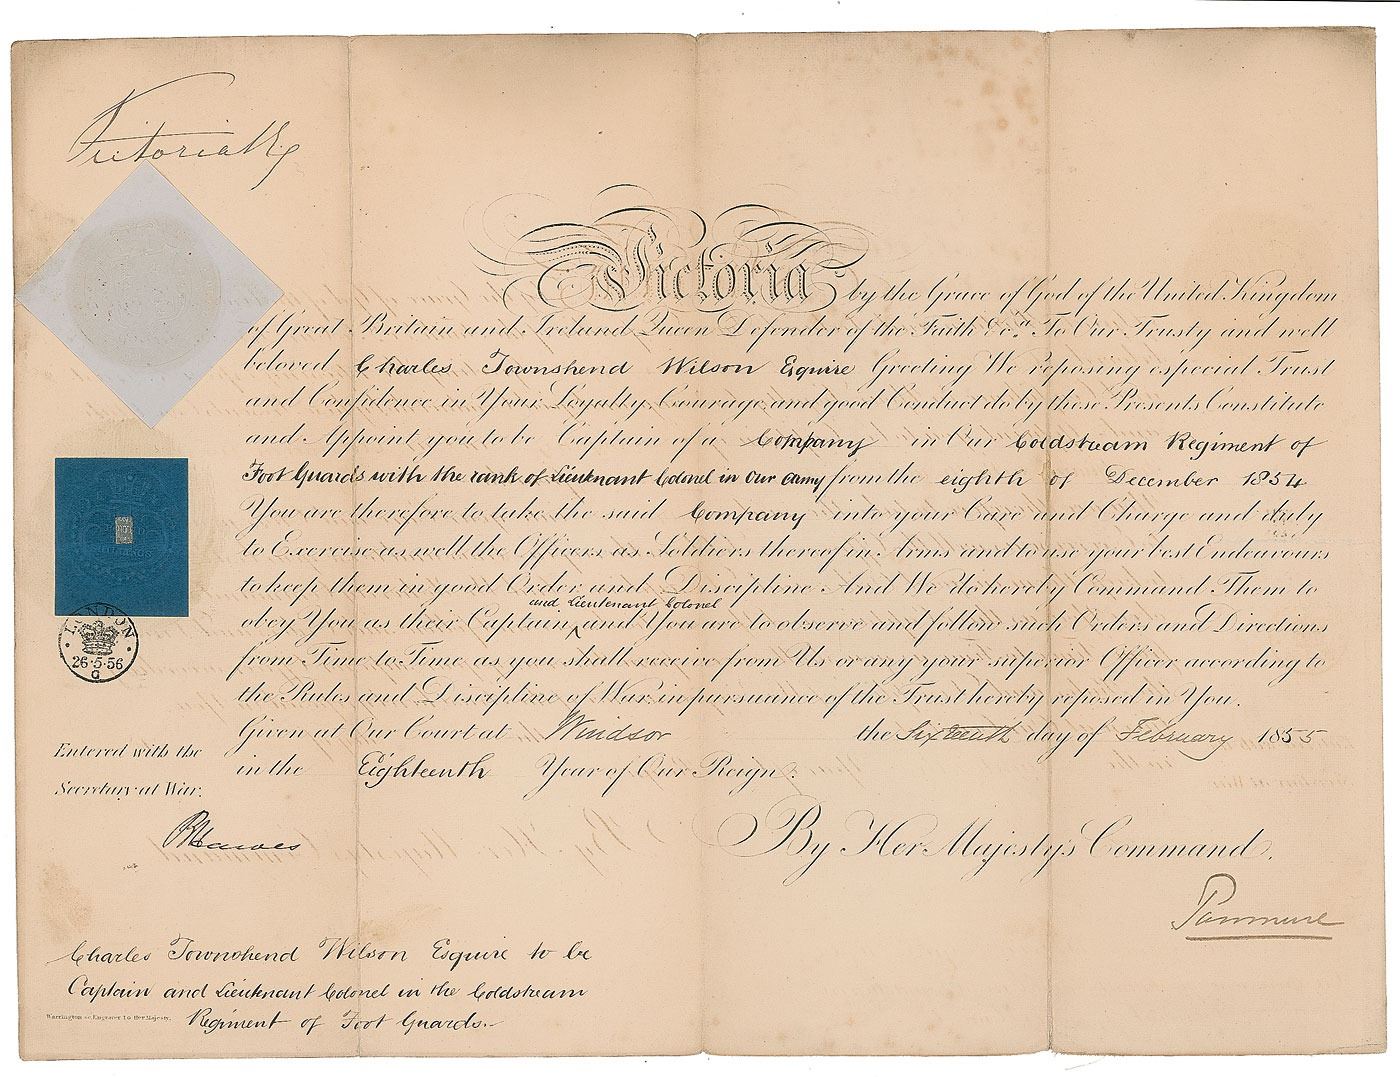 Victoria R
Victoria by the Grace of God of the United Kingdom
of Great Britain and Ireland Queen Defender of the Faith &c.a To Our Trusty and well
beloved Charles Townshend Wilson Esquire Greeting We reposing especial Trust
and Confidence in Your Loyalty, Courage, and good Conduct do by these Presents Constitute
and Appoint you to be Captain of a Company in Our Coldstream Regiment of
Foot Guards with the rank of Lieutenant Colonel in our army from the eighth of December 1854
You are therefore to take the said Company into your Care and Charge and duly
to Exercise as well the Officers as Soldiers thereof in Arms and to use your best Endeavours
to keep them in good Order and Discipline And We do hereby Command Them to
and Lieutenant Colonel
obey You as their Captain ^ and You are to observe and follow such Orders and Directions
from Time to Time as you shall receive from Us or any your superior Officer according to
the Rules and Discipline of War, in pursuance of the Trust hereby reposed in You.
Given at Our Court at Windsor the Sixteenth day of February 1855
in the Eighteenth Year of Our Reign.
LONDON
26·5·56
G
Entered with the
Secretary at War.
BHawes
By Her Majesty's Command.
Panmure
Charles Townshend Wilson Esquire to be
Captain and Lieutenant Colonel in the Coldstream
Regiment of Foot Guards.
Warrington sc. Engraver to Her Majesty.